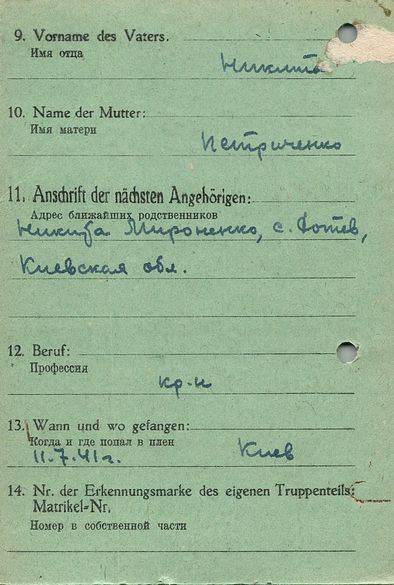 9. Vorname des Vaters.
Имя отца
Никита
10. Name der Mutter:
Имя матери
Петриченко
11. Anschrift der nächsten Angehörigen:
Адрес ближайших родственников
Никита Мироненко, с.
Киевская обл.
12. Beruf:
Профессия
кр-н
13. Wann und wo gefangen:
Когда и где попал в плен
11.7.41г. Киев
14. Nr. der Erkennungsmarke des eigenen Truppenteils:
Matrikel-Nr.
Номер в собственной части